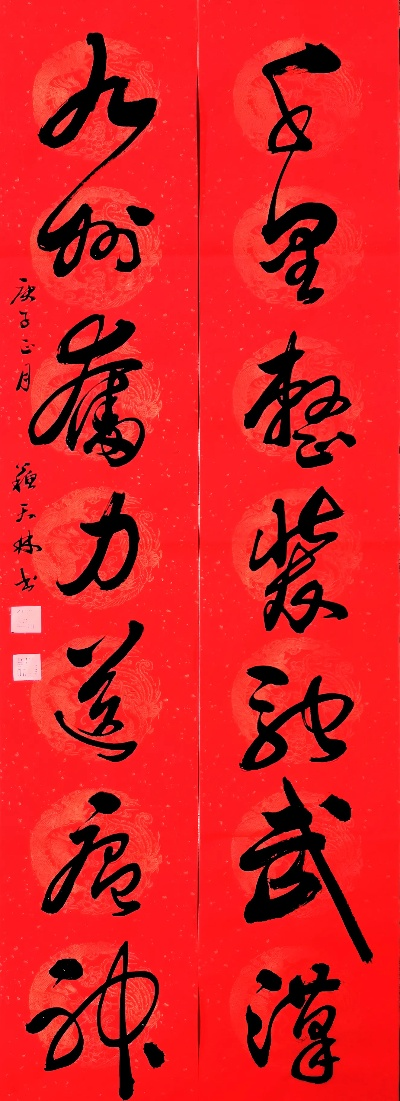 千里整装驰武漢
九州奮力送瘟神
庚子正月
蘇天林书